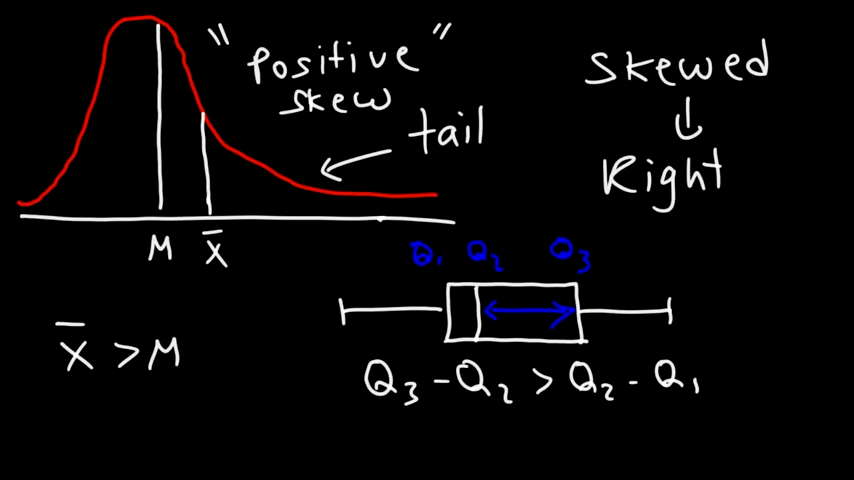 "Positive"
skew
tail
Skewed
↓
Right
M X̅
Q₁ Q₂ Q₃
X̅ > M
Q₃ - Q₂ > Q₂ - Q₁